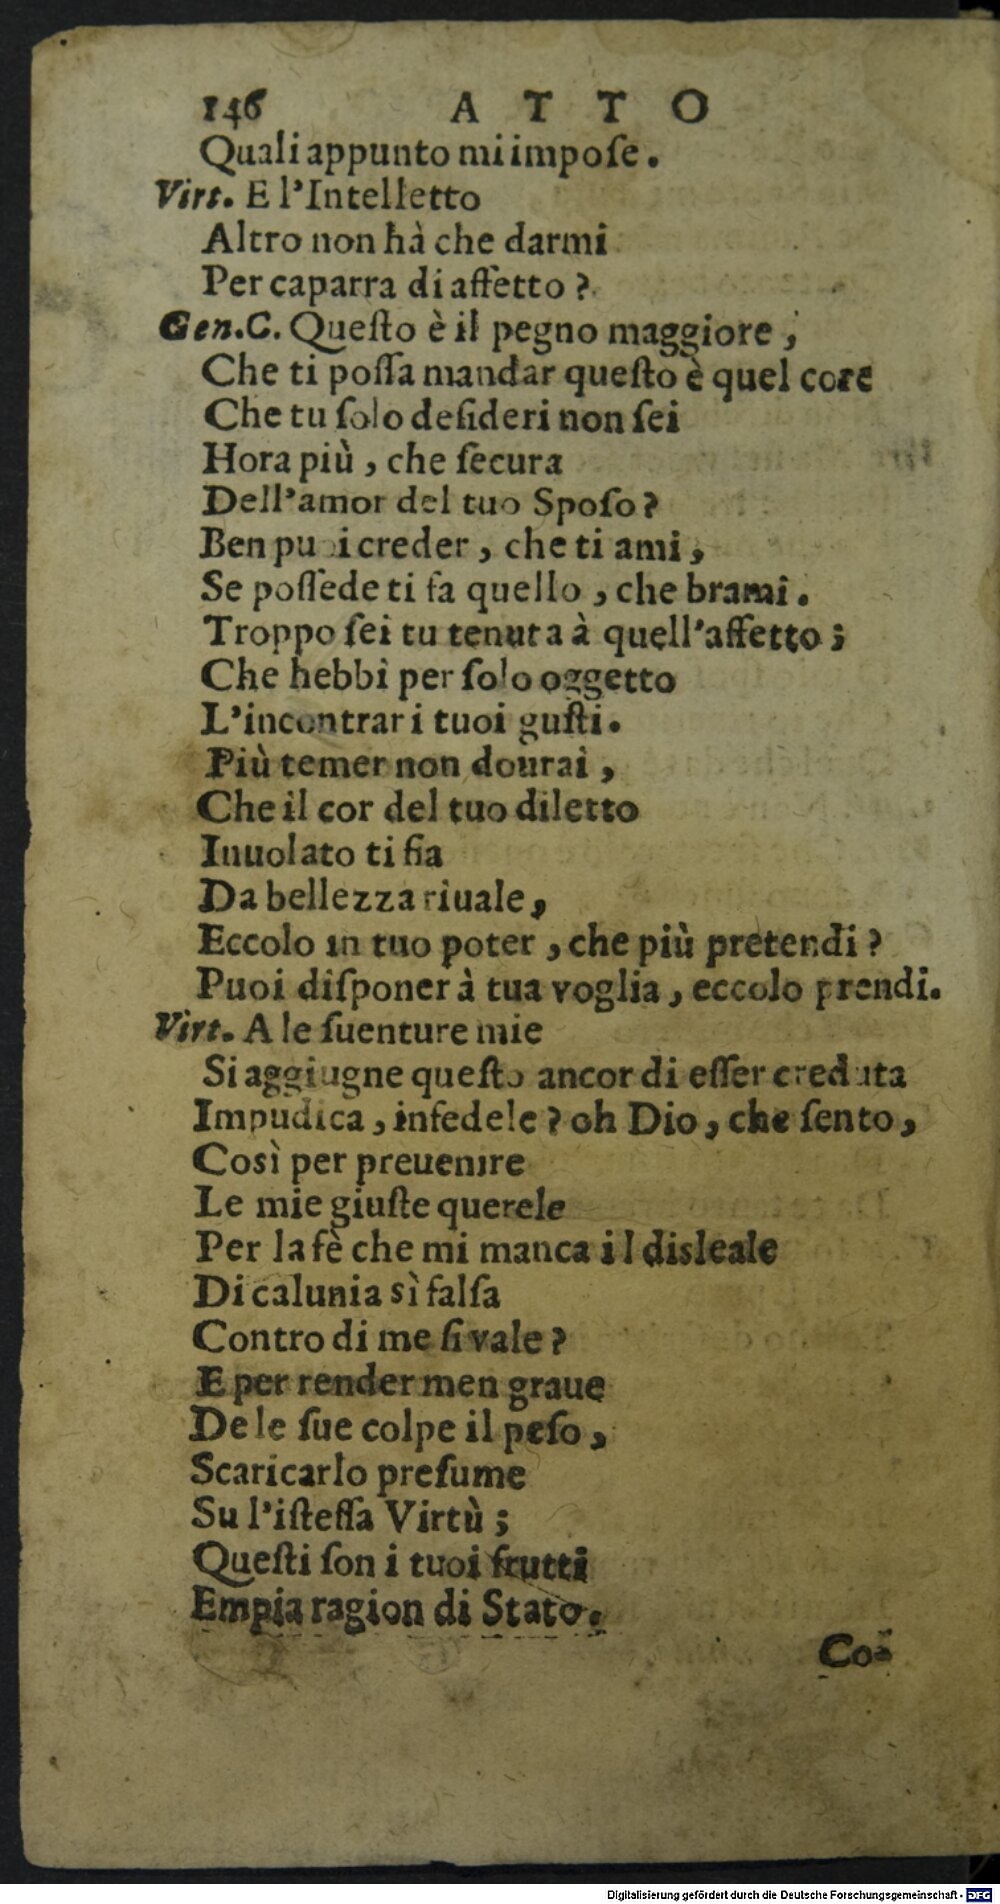 146 ATTO
Quali appunto mi impoſe.
Virt. E l'Intelletto
Altro non hà che darmi
Per caparra di affetto?
Gen.C. Queſto è il pegno maggiore,
Che ti poſſa mandar queſto è quel core
Che tu ſolo deſideri non ſei
Hora più, che ſecura
Dell'amor del tuo Spoſo?
Ben puoi creder, che ti ami,
Se poſſede ti fa quello, che brami.
Troppo ſei tu tenuta à quell'affetto;
Che hebbi per ſolo oggetto
L'incontrar i tuoi guſti.
Più temer non dourai,
Che il cor del tuo diletto
Inuolato ti ſia
Da bellezza riuale,
Eccolo in tuo poter, che più pretendi?
Puoi diſponer à tua voglia, eccolo prendi.
Virt. A le ſuenture mie
Si aggiugne queſto ancor di eſſer creduta
Impudica, infedele? oh Dio, che ſento,
Così per preuenire
Le mie giuſte querele
Per la fè che mi manca il disleale
Di calunia sì falſa
Contro di me ſi vale?
E per render men graue
De le ſue colpe il peſo,
Scaricarlo preſume
Su l'iſteſſa Virtù;
Queſti ſon i tuoi frutti
Empia ragion di Stato.
Co-
Digitalisierung gefördert durch die Deutsche Forschungsgemeinschaft - DFG